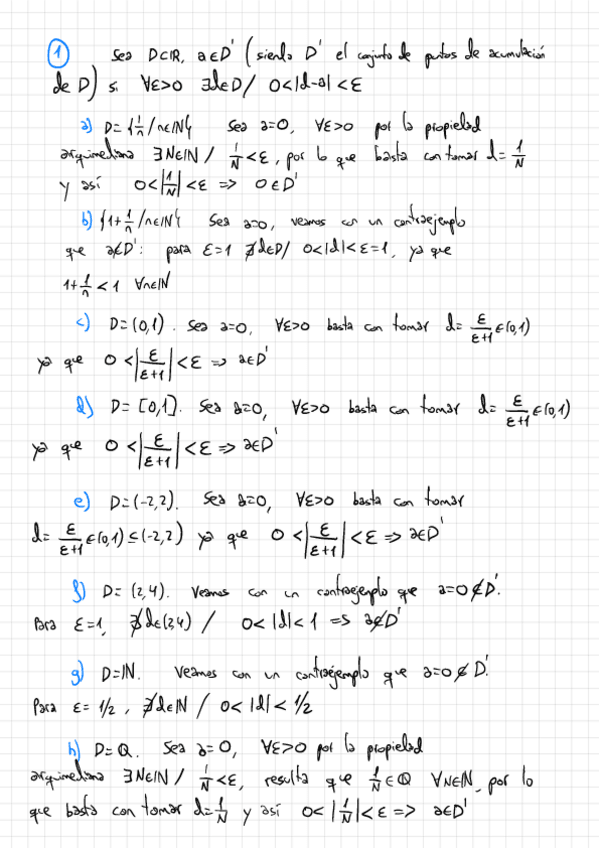 1 Sea D⊂ℝ, a∈D' (siendo D' el conjunto de puntos de acumulación
de D) si ∀ε>0 ∃d∈D/ 0<|d-a|<ε
a) D={1/n /n∈ℕ} Sea a=0, ∀ε>0 por la propiedad
arquimediana ∃N∈ℕ / 1/N<ε, por lo que basta con tomar d=1/N
y así 0<|1/N|<ε => 0∈D'
b) {1+1/n /n∈ℕ} Sea a=0, veamos con un contraejemplo
que a∉D': para ε=1 ∄d∈D/ 0<|d|<ε=1, ya que
1+1/n<1 ∀n∈ℕ
c) D=(0,1). Sea a=0, ∀ε>0 basta con tomar d=ε/(ε+1)∈(0,1)
ya que 0<|ε/(ε+1)|<ε => a∈D'
d) D=[0,1]. Sea a=0, ∀ε>0 basta con tomar d=ε/(ε+1)∈(0,1)
ya que 0<|ε/(ε+1)|<ε => a∈D'
e) D=(-2,2). Sea a=0, ∀ε>0 basta con tomar
d=ε/(ε+1)∈(0,1)⊆(-2,2) ya que 0<|ε/(ε+1)|<ε => a∈D'
f) D=(2,4). Veamos con un contraejemplo que a=0∉D'.
Para ε=1, ∄d∈(2,4) / 0<|d|<1 => a∉D'
g) D=ℕ. Veamos con un contraejemplo que a=0∉D'.
Para ε=1/2, ∄d∈ℕ / 0<|d|<1/2
h) D=ℚ. Sea a=0, ∀ε>0 por la propiedad
arquimediana ∃N∈ℕ / 1/N<ε, resulta que 1/N∈ℚ ∀N∈ℕ, por lo
que basta con tomar d=1/N y así 0<|1/N|<ε => a∈D'